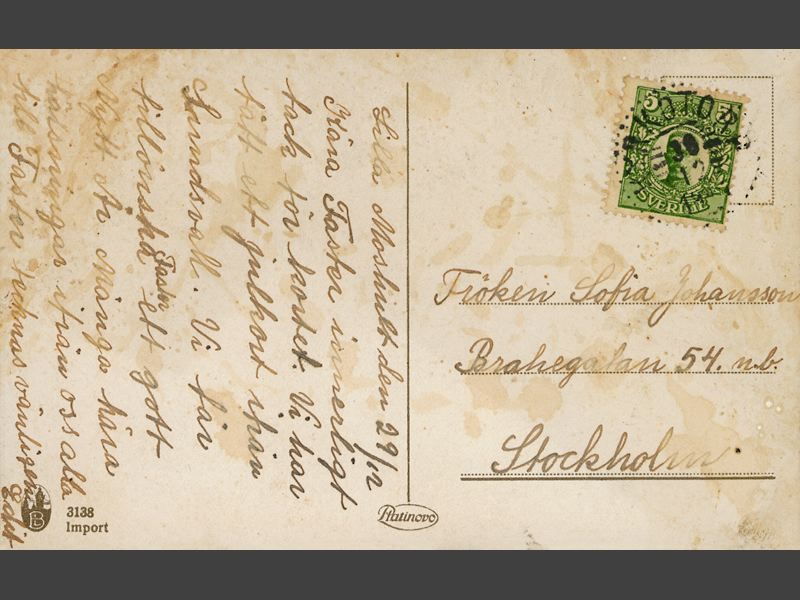 Lilla Moshult den 29/12
Kära Faster innerligt
tack för kortet. Vi har
fått ett julkort ifrån
Sundsvall. Vi får
Faster
tillönska ett gott
Nytt År. Många kära
hälsningar ifrån oss alla
till Faster tecknas vänligen
Edit
5 5
SVERIGE
Fröken Sofia Johansson
Brahegatan 54. n.b.
Stockholm
3138
Import
Platinovo